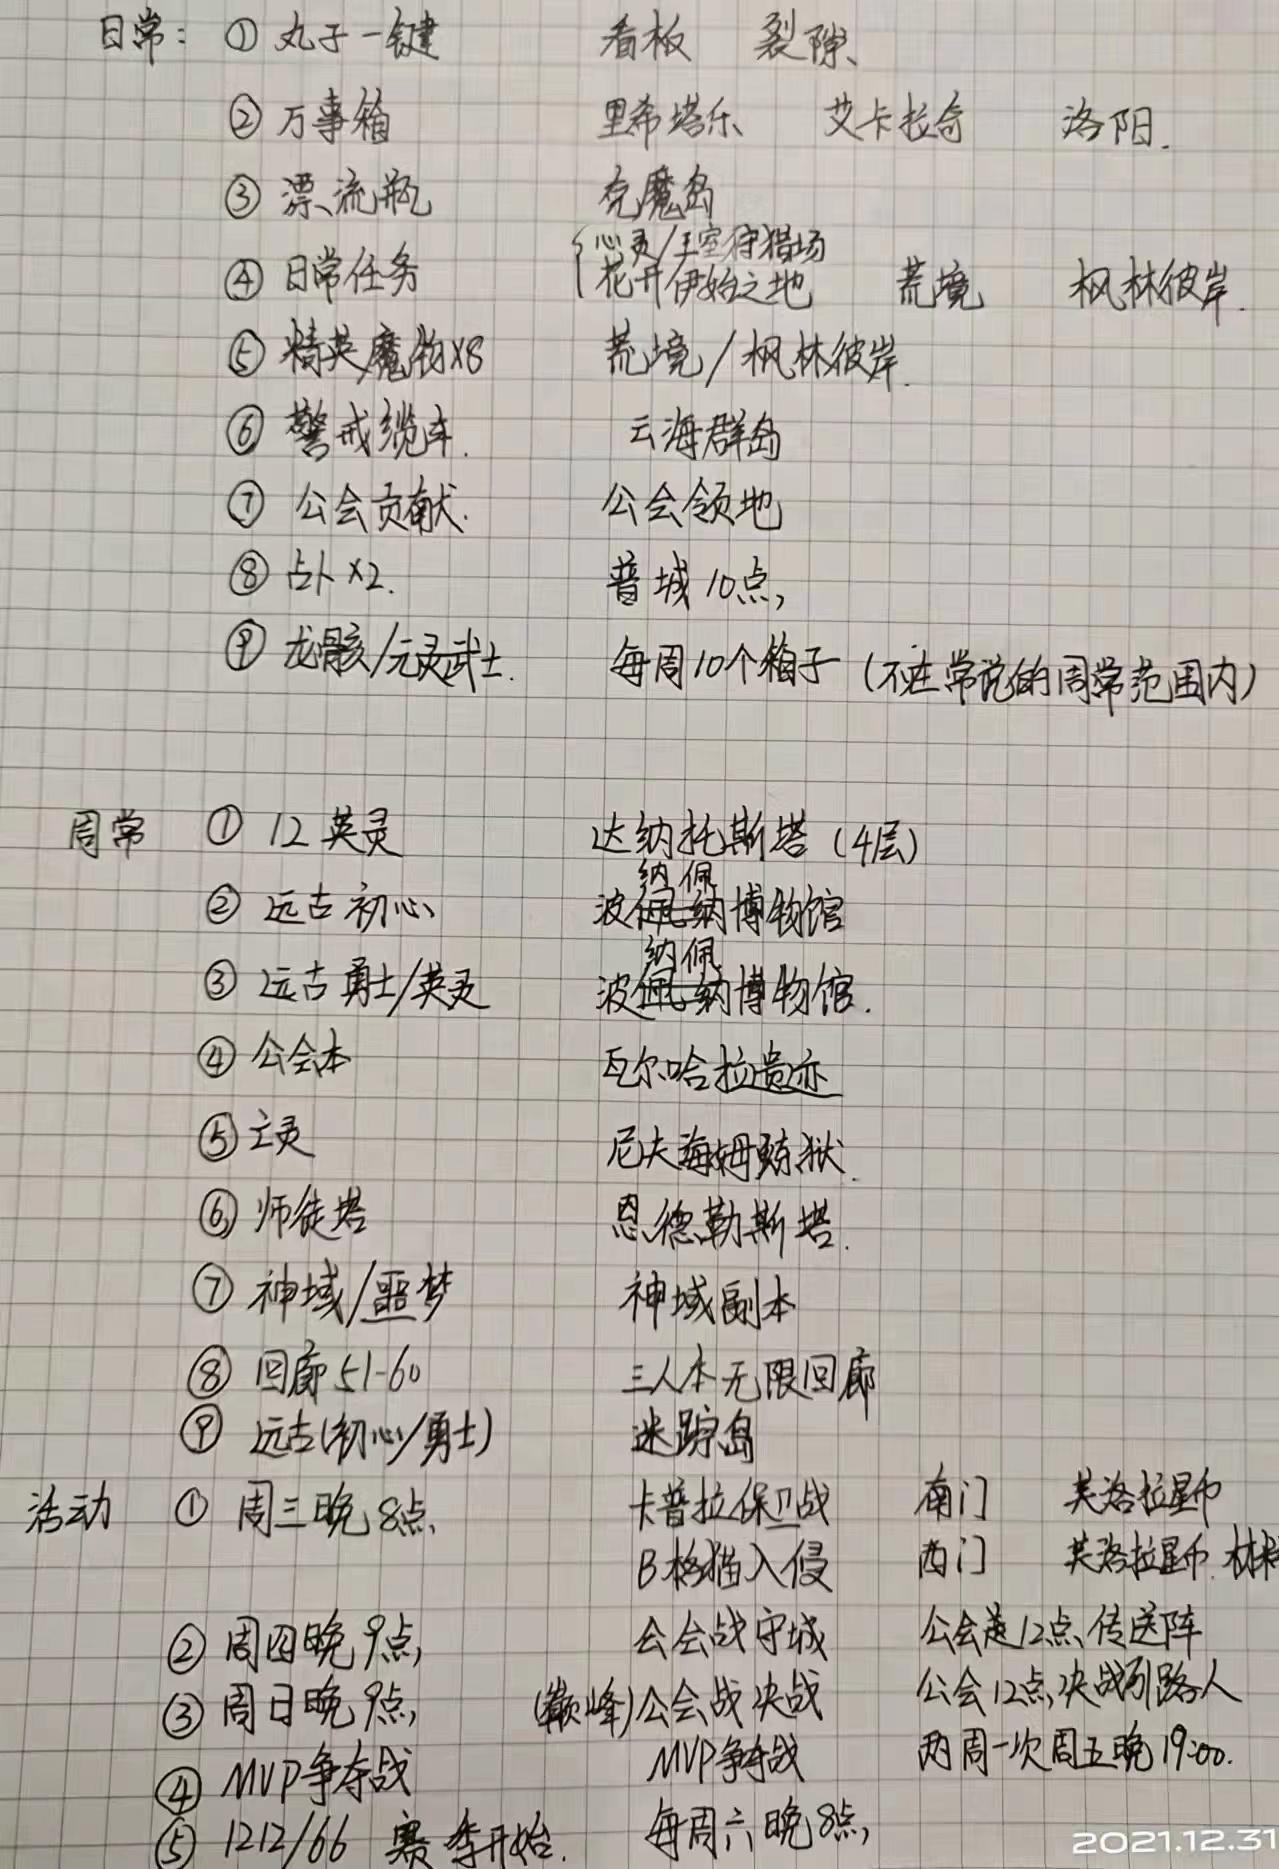 日常: ① 丸子一键 看板 裂隙
② 万事箱 里希塔乐 艾卡拉奇 洛阳.
③ 漂流瓶 克魔岛
心灵/王室狩猎场
④ 日常任务 花开伊始之地 荒境 枫林彼岸.
⑤ 精英魔物x8 荒境/枫林彼岸.
⑥ 警戒缆车. 云海群岛
⑦ 公会贡献. 公会领地
⑧ 占卜x2. 普城10点,
⑨ 龙骸/元灵武士. 每周10个箱子 (不在常说的周常范围内)
周常 ① 12英灵 达纳托斯塔 (4层)
纳佩
② 远古初心 波佩纳博物馆
纳佩
③ 远古勇士/英灵 波佩纳博物馆.
④ 公会本 瓦尔哈拉遗迹
⑤ 亡灵 尼夫海姆炼狱.
⑥ 师徒塔 恩德勒斯塔.
⑦ 神域/噩梦 神域副本
⑧ 回廊51-60 三人本无限回廊
⑨ 远古(初心/勇士) 迷踪岛
活动 ① 周三晚8点, 卡普拉保卫战 南门 芙洛拉星币
B格猫入侵 西门 芙洛拉星币.材料
② 周四晚9点, 公会战守城 公会 12点传送阵
③ 周日晚9点, (巅峰)公会战决战 公会12点,决战引路人
④ MVP争夺战 MVP争夺战 两周一次周五晚19:00.
⑤ 1212/66 赛季开始. 每周六晚8点,
2021.12.31